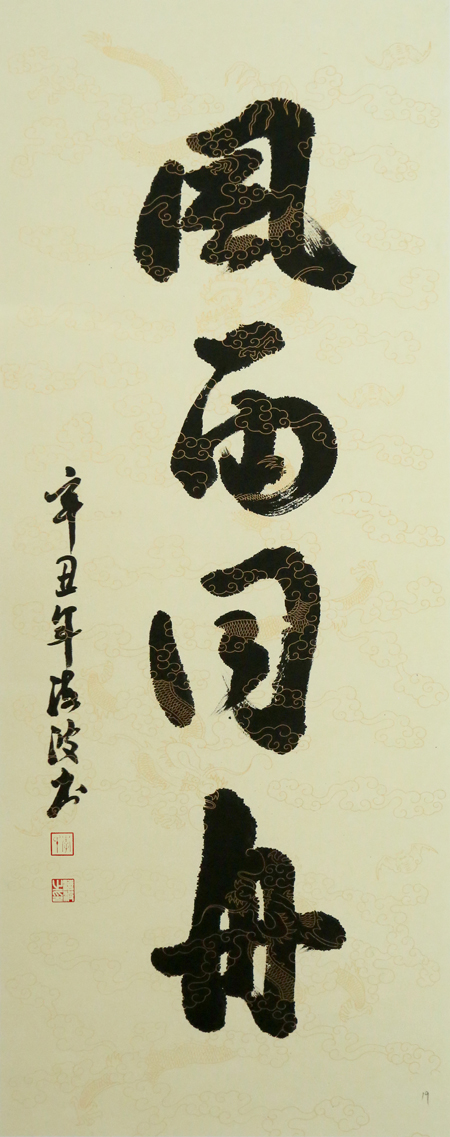 风雨同舟
辛丑年海波书